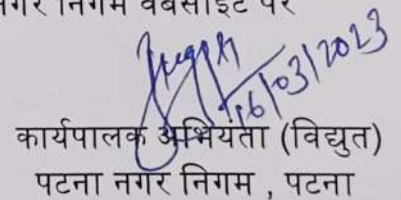 नगर निगम वेबसाइट पर
16/03/2023
कार्यपालक अभियंता (विद्युत)
पटना नगर निगम , पटना